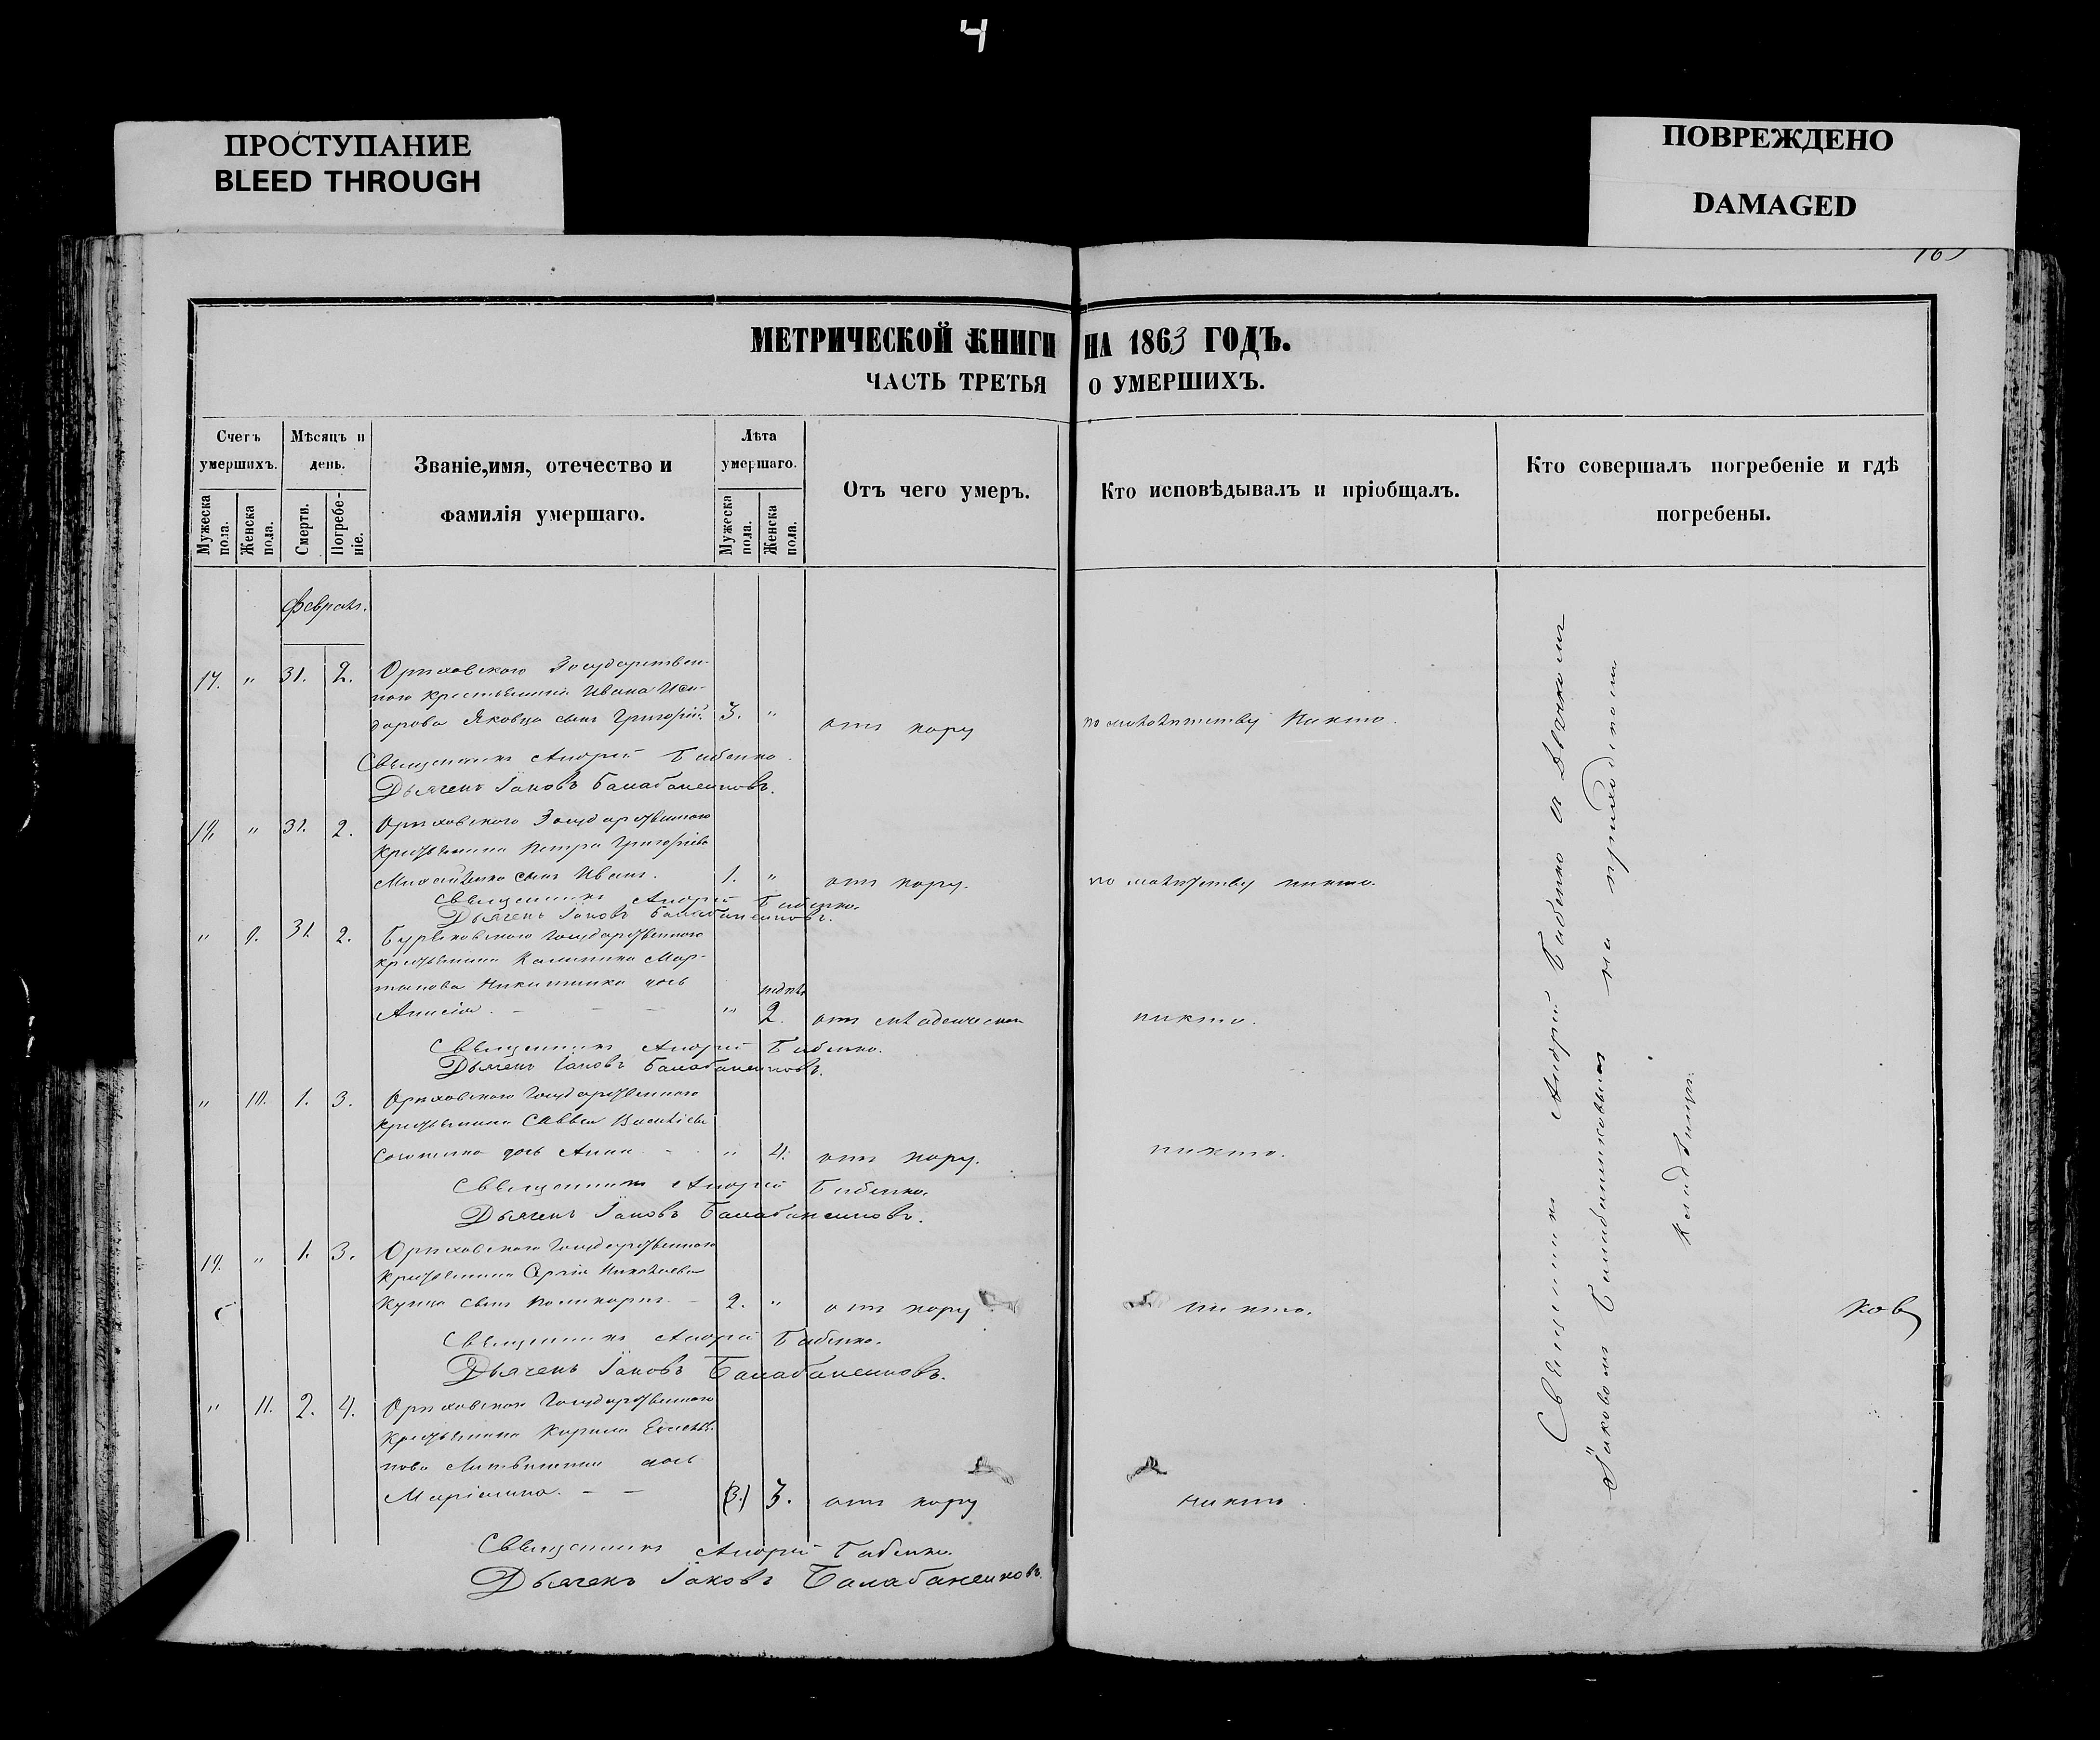 4
ПРОСТУПАНИЕ
BLEED THROUGH
ПОВРЕЖДЕНО
DAMAGED
МЕТРИЧЕСКОЙ КНИГИ НА 1863 ГОДЪ.
ЧАСТЬ ТРЕТЬЯ О УМЕРШИХЪ.
Счетъ умершихъ.
Мужеска пола.
Женска пола.
Мѣсяцъ и день.
Смерти.
Погребеніе.
Званіе, имя, отечество и фамилія умершаго.
Лѣта умершаго.
Мужеска пола.
Женска пола.
Отъ чего умеръ.
Кто исповѣдывалъ и пріобщалъ.
Кто совершалъ погребеніе и гдѣ погребены.
Февраль.
17. " 31. 2. Орѣховскаго Государствен-
наго крестьянина Ивана Иси-
дорова Яковца сынъ Григорій. 3. " отъ кору по малолѣтству никто.
Священникъ Андрей Бабенко.
Дьячекъ Іаковъ Балабаненковъ.
" 31. 2. Орѣховскаго Государственнаго
крестьянина Петра Григоріева
сынъ Иванъ. 1. " отъ кору. по малолѣтству никто.
Священникъ Андрей Бабенко.
Дьячекъ Іаковъ Балабаненковъ.
" 9. 31. 2. Государственнаго
крестьянина Калинника Мар-
Никитенка дочь
Анисія. " 2. отъ младенческой никто.
Священникъ Андрей Бабенко.
Дьячекъ Іаковъ Балабаненковъ.
" 10. 1. 3. Орѣховскаго Государственнаго
крестьянина Саввы Василіева
дочь Анна " 4. отъ кору. никто.
Священникъ Андрей Бабенко.
Дьячекъ Іаковъ Балабаненковъ.
19. " 1. 3. Орѣховскаго Государственнаго
крестьянина Сергія Николаева
сынъ Поликарпъ 2. " отъ кору никто.
Священникъ Андрей Бабенко.
Дьячекъ Іаковъ Балабаненковъ.
" 11. 2. 4. Орѣховскаго Государственнаго
крестьянина Кирила
Литвиненка дочь
Маріанна. (3.) 3. отъ кору никто.
Священникъ Андрей Бабенко.
Дьячекъ Іаковъ Балабаненковъ.
Священникъ Андрей Бабенко и дьячкомъ
Іаковомъ Балабаненковымъ на приходскомъ
кладбищѣ.
ковъ